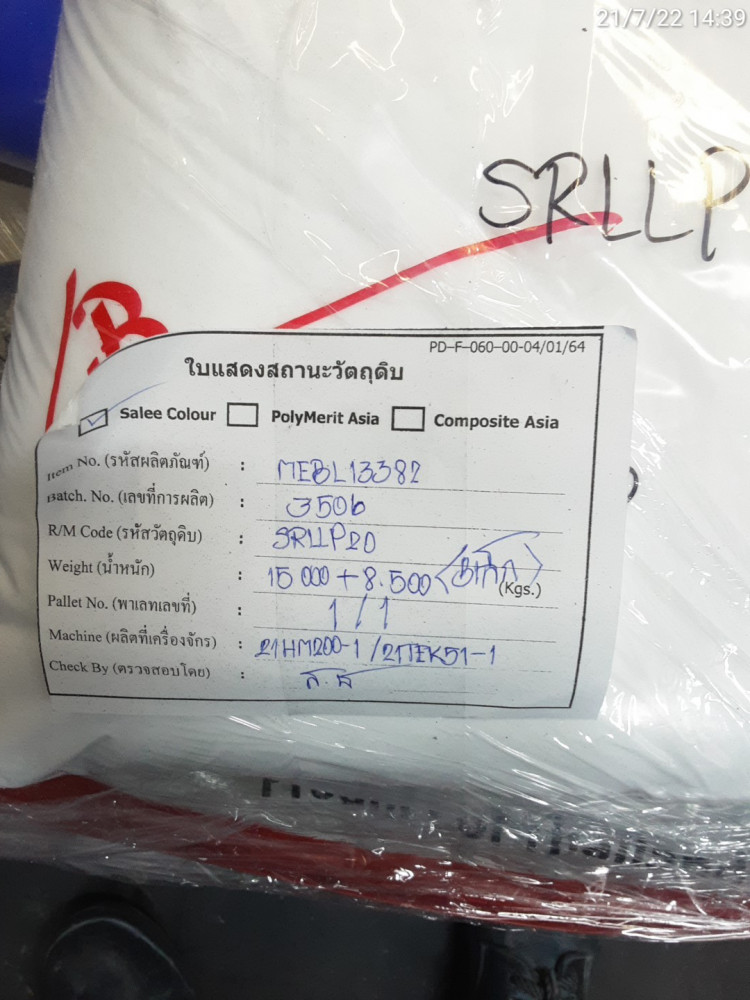 21/7/22 14:39
SRLLP
PD-F-060-00-04/01/64
ใบแสดงสถานะวัตถุดิบ
Salee Colour PolyMerit Asia Composite Asia
Item No. (รหัสผลิตภัณฑ์) : MEBL13382
Batch. No. (เลขที่การผลิต) : 3506
R/M Code (รหัสวัตถุดิบ) : SRLLP20
Weight (น้ำหนัก) : 15 000 + 8.500 (Kgs.)
Pallet No. (พาเลทเลขที่) : 1 / 1
Machine (ผลิตที่เครื่องจักร) : 21HM200-1 / 21TEK51-1
Check By (ตรวจสอบโดย) :
Product of Thailand